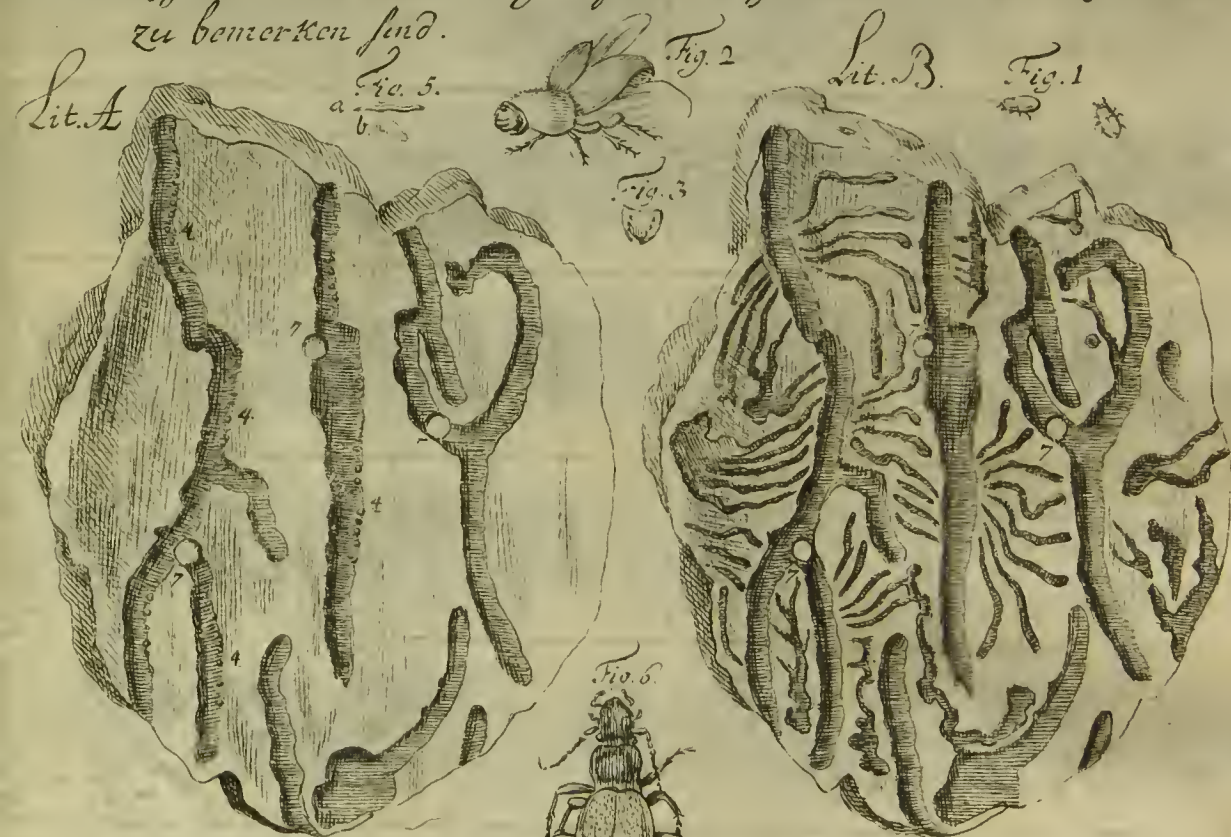 zu bemerken sind.
Lit. A
Fig. 5.
a
b
Fig. 2
Lit. B.
Fig. 1
Fig. 3
4
7
4
4
7
4
7
Fig. 6.